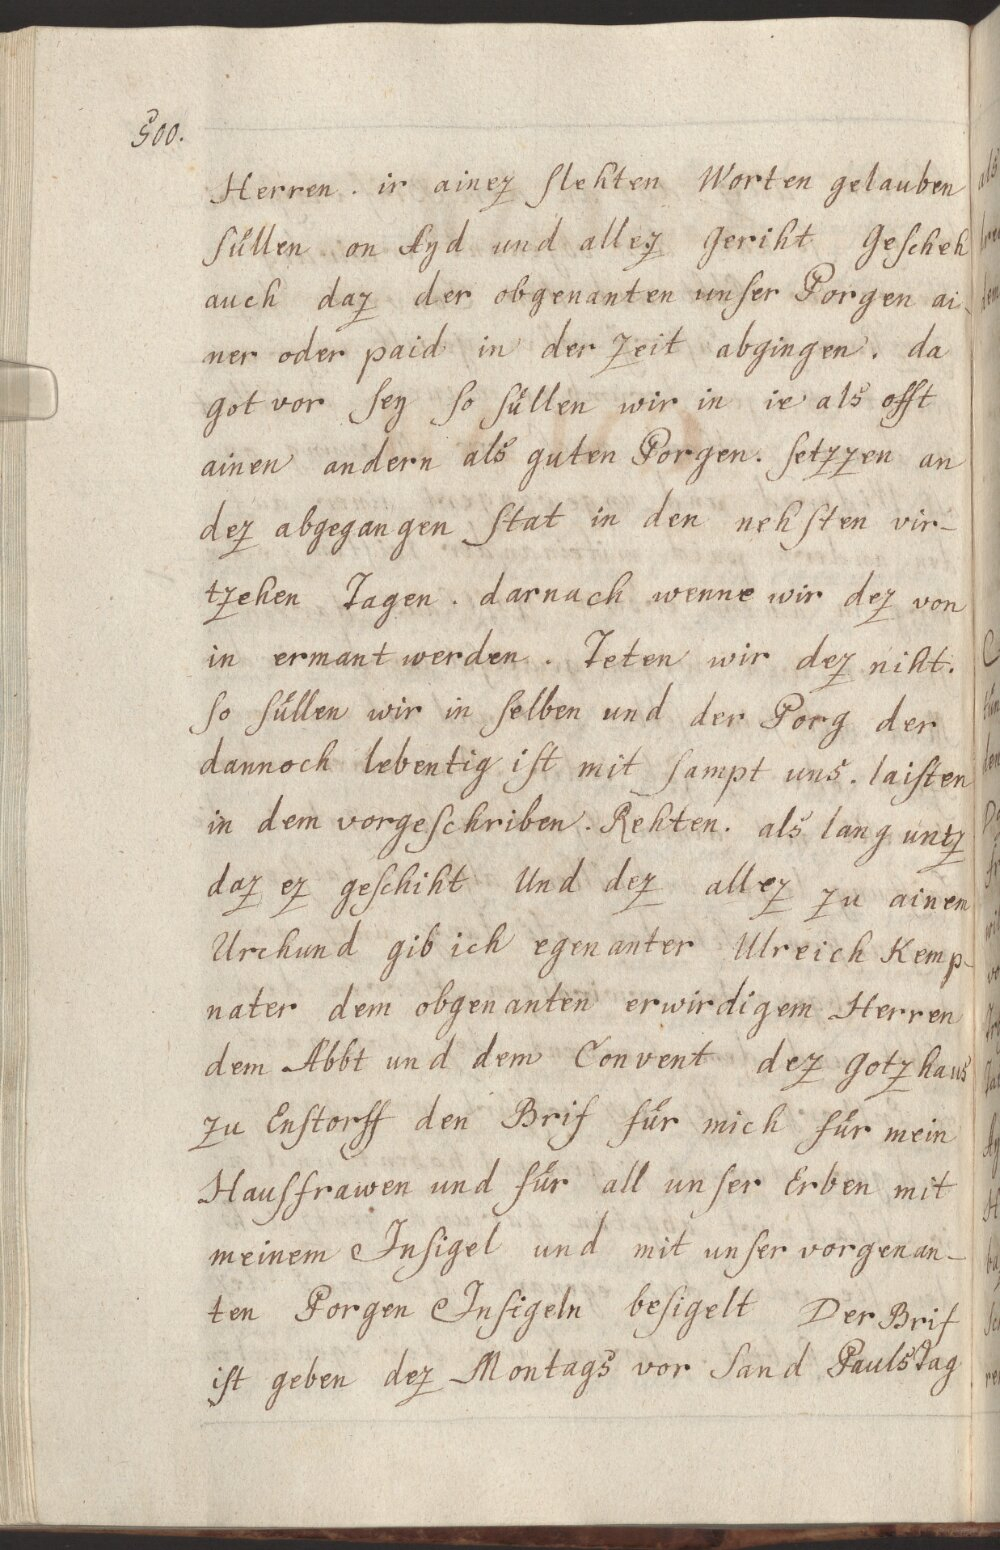 500.
Herren. ir ainez slehten Worten gelauben
süllen on Ayd und allez Geriht Gescheh
auch daz der obgenanten unser Porgen ai-
ner oder paid in der zeit abgingen. da
got vor sey so süllen wir in ie als offt
ainen andern als guten Porgen. setzzen an
dez abgegangen stat in den nehsten vir-
tzehen Tagen. darnach wenne wir dez von
in ermant werden. Teten wir dez niht.
so süllen wir in selben und der Porg der
dannoch lebentig ist mit sampt uns. laisten
in dem vorgeschriben. Rehten. als lang untz
daz ez geschiht Und dez allez zu ainem
Urchund gib ich egenanter Ulreich Kemp-
nater dem obgenanten erwirdigem Herren
dem Abbt und dem Convent dez Gotzhaus
zu Enstorff den Brif für mich für mein
Hausfrawen und für all unser Erben mit
meinem Insigel und mit unser vorgenan-
ten Porgen Insigeln besigelt Der Brif
ist geben dez Montags vor Sand Pauls Tag